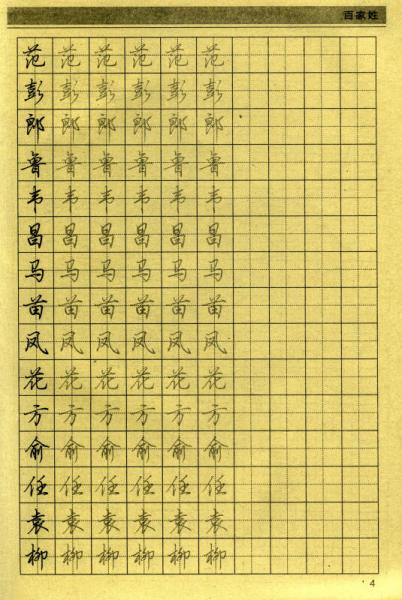 百家姓
范范范范范范
彭彭彭彭彭彭
郎郎郎郎郎郎
鲁鲁鲁鲁鲁鲁
韦韦韦韦韦韦
昌昌昌昌昌昌
马马马马马马
苗苗苗苗苗苗
凤凤凤凤凤凤
花花花花花花
方方方方方方
俞俞俞俞俞俞
任任任任任任
袁袁袁袁袁袁
柳柳柳柳柳柳
4